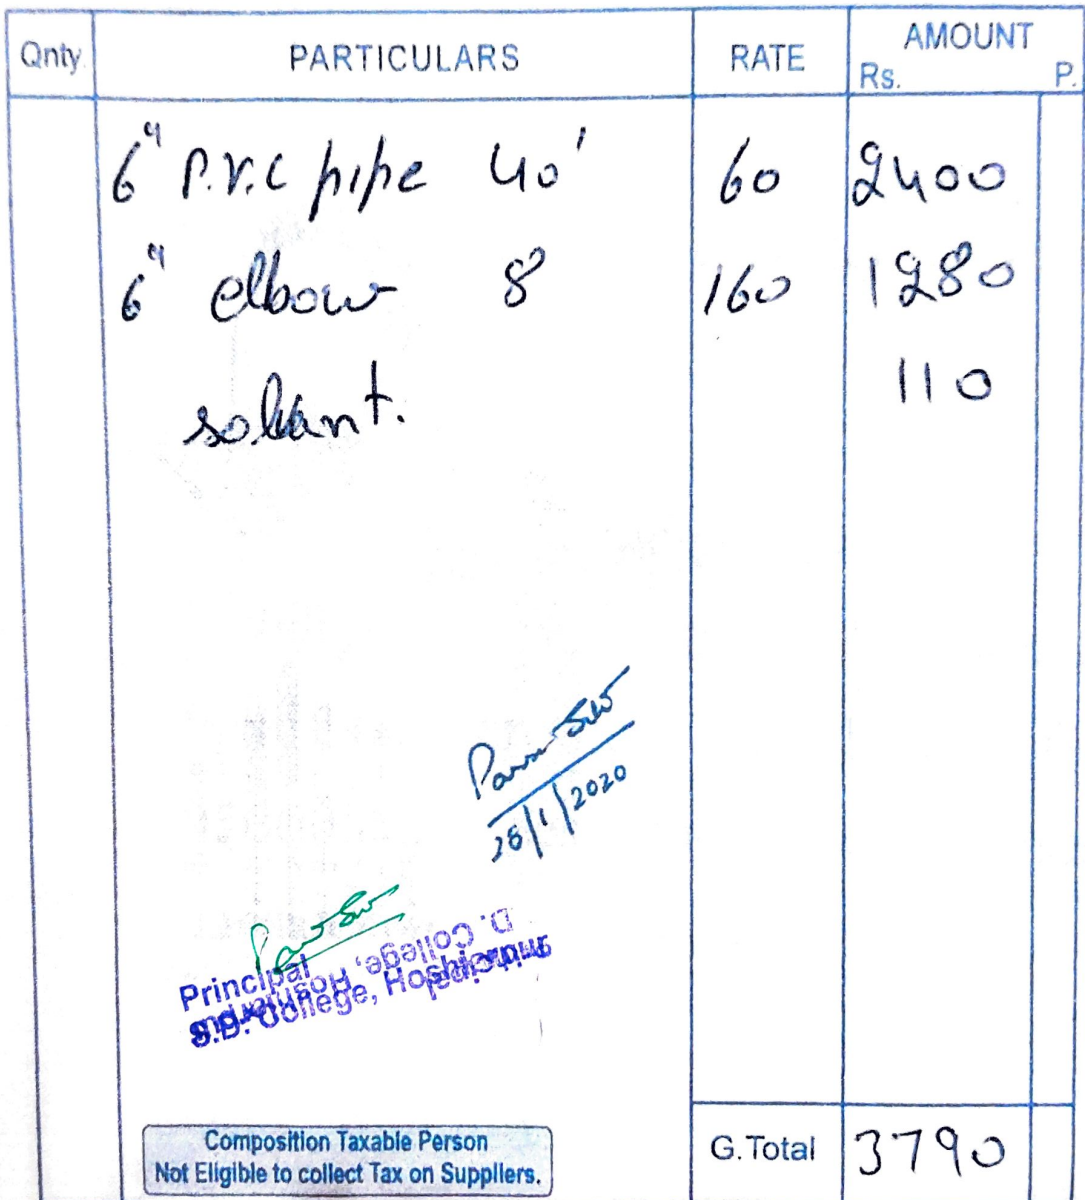 Qnty. PARTICULARS RATE AMOUNT
Rs. P.
6" P.V.C pipe 40' 60 2400
6" elbow 8 160 1280
solvant. 110
28/1/2020
Principal
S.D. College, Hoshiarpur
D. College, Hoshiarpur
Principal
Composition Taxable Person
Not Eligible to collect Tax on Suppliers.
G.Total 3790